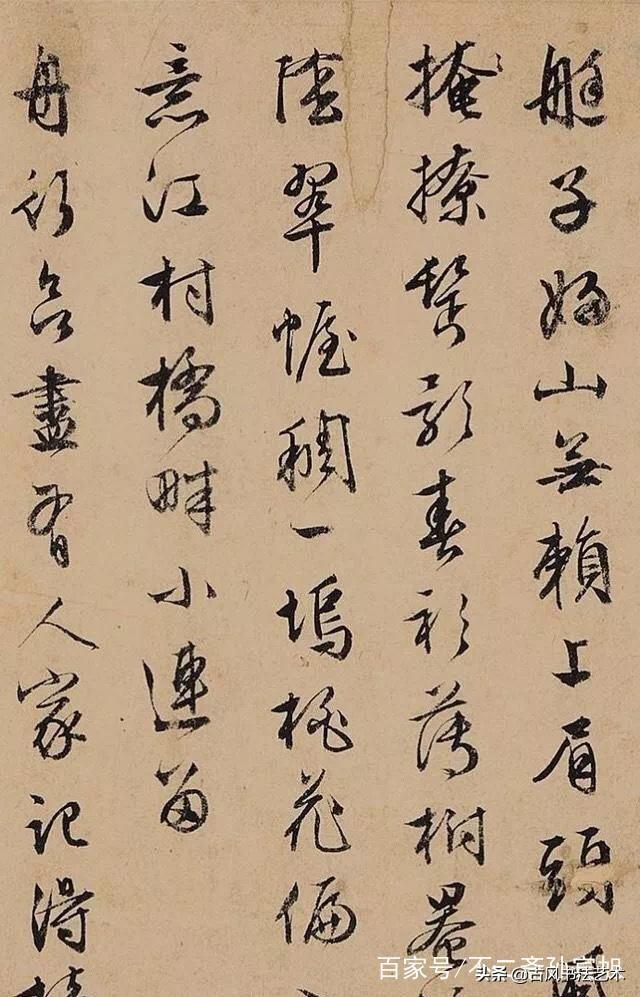 艇子山無賴上眉頭
掩撩鬢影春衫薄樹罨
陰翠幄稠一塢桃花偏
意江村橋畔小連留
舟行盡有人家記得
百家号/不二斋孙
头条@古风书法艺术